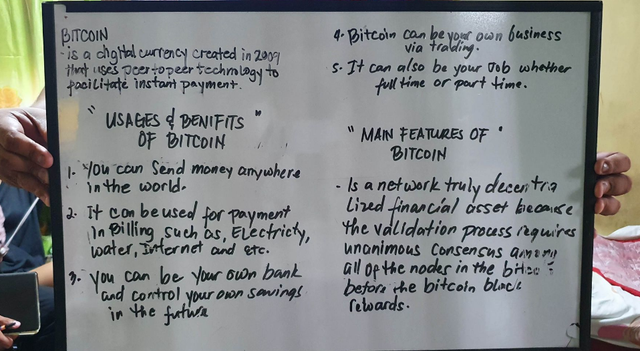 BITCOIN
- is a digital currency created in 2009
that uses peer to peer technology to
facilitate instant payment.
"USAGES & BENIFITS"
OF BITCOIN
1- You can send money anywhere
in the world.
2- It can be used for payment
in Billing such as, Electricty,
water, Internet and etc.
3- You can be your own bank
and control your own savings
in the future
4- Bitcoin can be your own business
via trading.
5- It can also be your Job whether
full time or part time.
"MAIN FEATURES OF"
BITCOIN
- Is a network truly decentra
lized financial asset because
the validation process requires
unanimous consensus among
all of the nodes in the
before the bitcoin block
rewards.